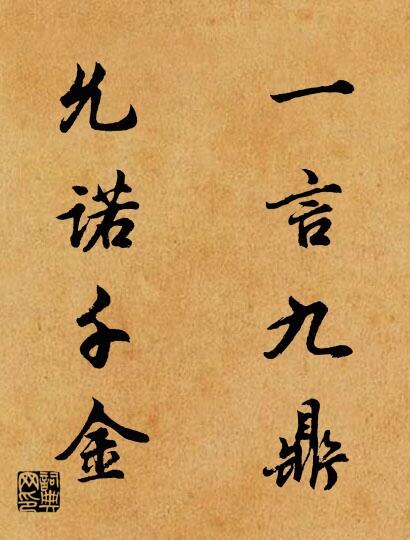 一言九鼎
允诺千金
詞典
网印